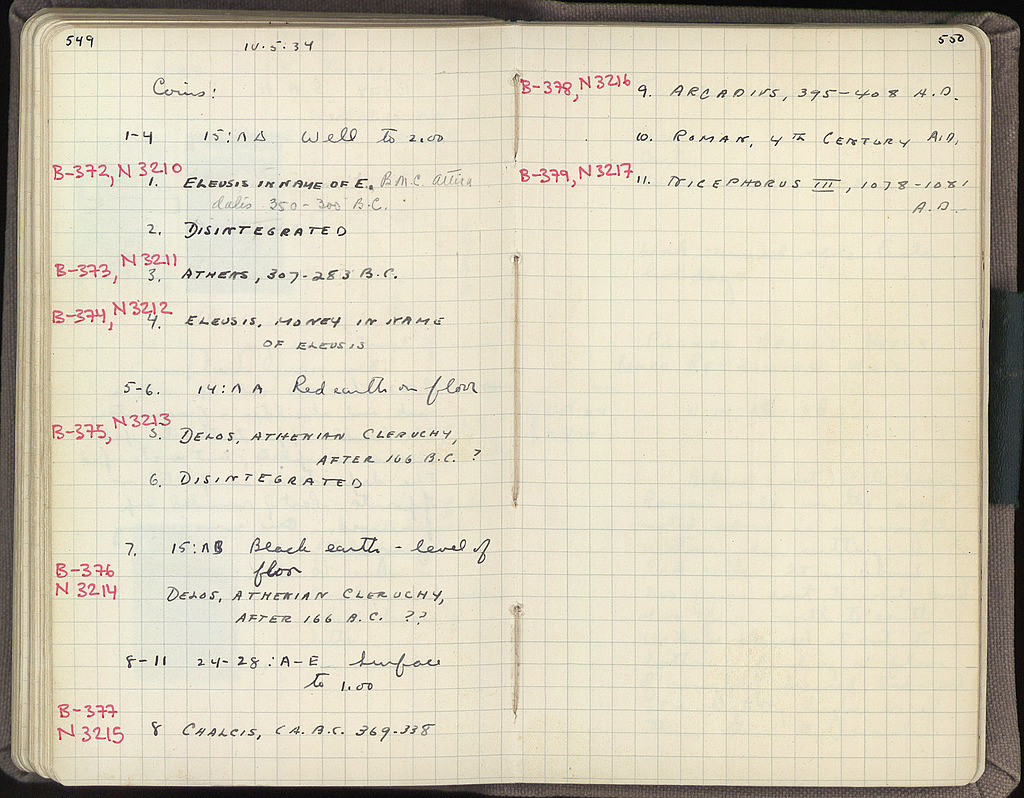 549
10.5.34
Coins:
1-4 15:ΛΔ Well to 2.00
B-372, N 3210
1. ELEUSIS IN NAME OF E. B.M.C. Attica
dates 350-300 B.C.
2. DISINTEGRATED
B-373, N 3211
3. ATHENS, 307-283 B.C.
B-374, N 3212
4. ELEUSIS, MONEY IN NAME
OF ELEUSIS
5-6. 14:ΛA Red earth on floor
B-375, N 3213
5. DELOS, ATHENIAN CLERUCHY,
AFTER 166 B.C. ?
6. DISINTEGRATED
7. 15:ΛB Black earth - level of
floor
B-376
N 3214
DELOS, ATHENIAN CLERUCHY,
AFTER 166 B.C. ??
8-11 24-28:A-E Surface
to 1.00
B-377
N 3215
8 CHALCIS, CA. B.C. 369-338
550
B-378, N 3216
9. ARCADIUS, 395-408 A.D.
10. ROMAN, 4TH CENTURY A.D.
B-379, N 3217
11. NICEPHORUS III, 1078-1081
A.D.